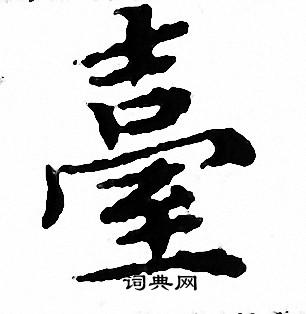 臺
词典网